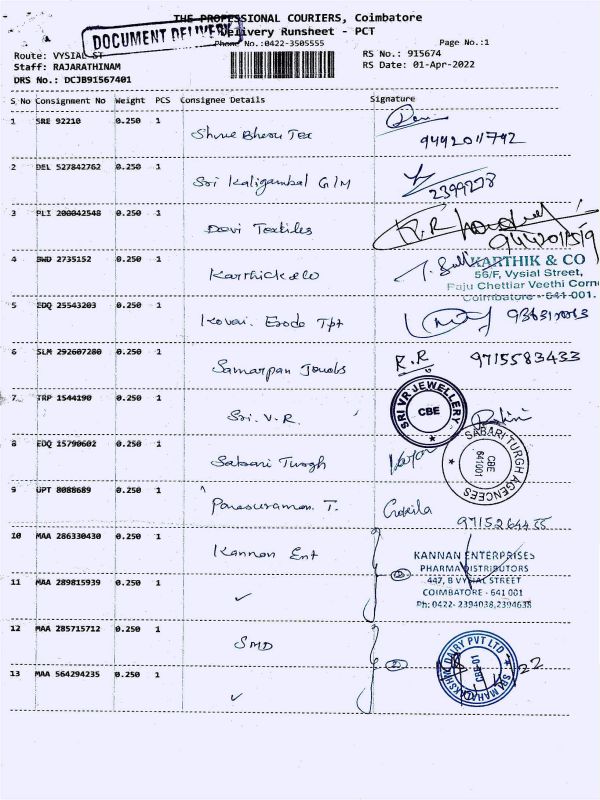 THE PROFESSIONAL COURIERS, Coimbatore
DOCUMENT DELIVERY
Delivery Runsheet - PCT
Phone No.:0422-3505555
Page No.:1
Route: VYSIAL ST
RS No.: 915674
Staff: RAJARATHINAM
RS Date: 01-Apr-2022
DRS No.: DCJB91567401
S No Consignment No Weight PCS Consignee Details Signature
1 SRE 92210 0.250 1
Shree Bheru Tex
9442011742
2 DEL 527842762 0.250 1
Sri Kaligambal G/M
2399278
3 PLI 200042548 0.250 1
Devi Textiles
4 BWD 2735152 0.250 1
Karthick & co
KARTHIK & CO
56/F, Vysial Street,
Raju Chettiar Veethi Corne
Coimbatore - 641 001.
5 EDQ 25543203 0.250 1
Kovai. Erode Tpt
6 SLM 292607280 0.250 1
Samarpan Jewels
R.R
9715583433
7 TRP 1544190 0.250 1
Sri. V.R.
SRI VR JEWELLERY
CBE
8 EDQ 15790602 0.250 1
Sabari Turgh
SABARI TURGH AGENCEES
CBE
641001
9 UPT 8088689 0.250 1
Parasuraman T.
Gokila
10 MAA 286330430 0.250 1
Kannan Ent
KANNAN ENTERPRISES
PHARMA DISTRIBUTORS
447, B VYSIAL STREET
COIMBATORE - 641 001
Ph: 0422- 2394038,2394638
11 MAA 289815939 0.250 1
✓
12 MAA 285715712 0.250 1
SMD
2
SRI MAHALAKSHMI DAIRY PVT LTD
CBE-01
13 MAA 564294235 0.250 1
✓